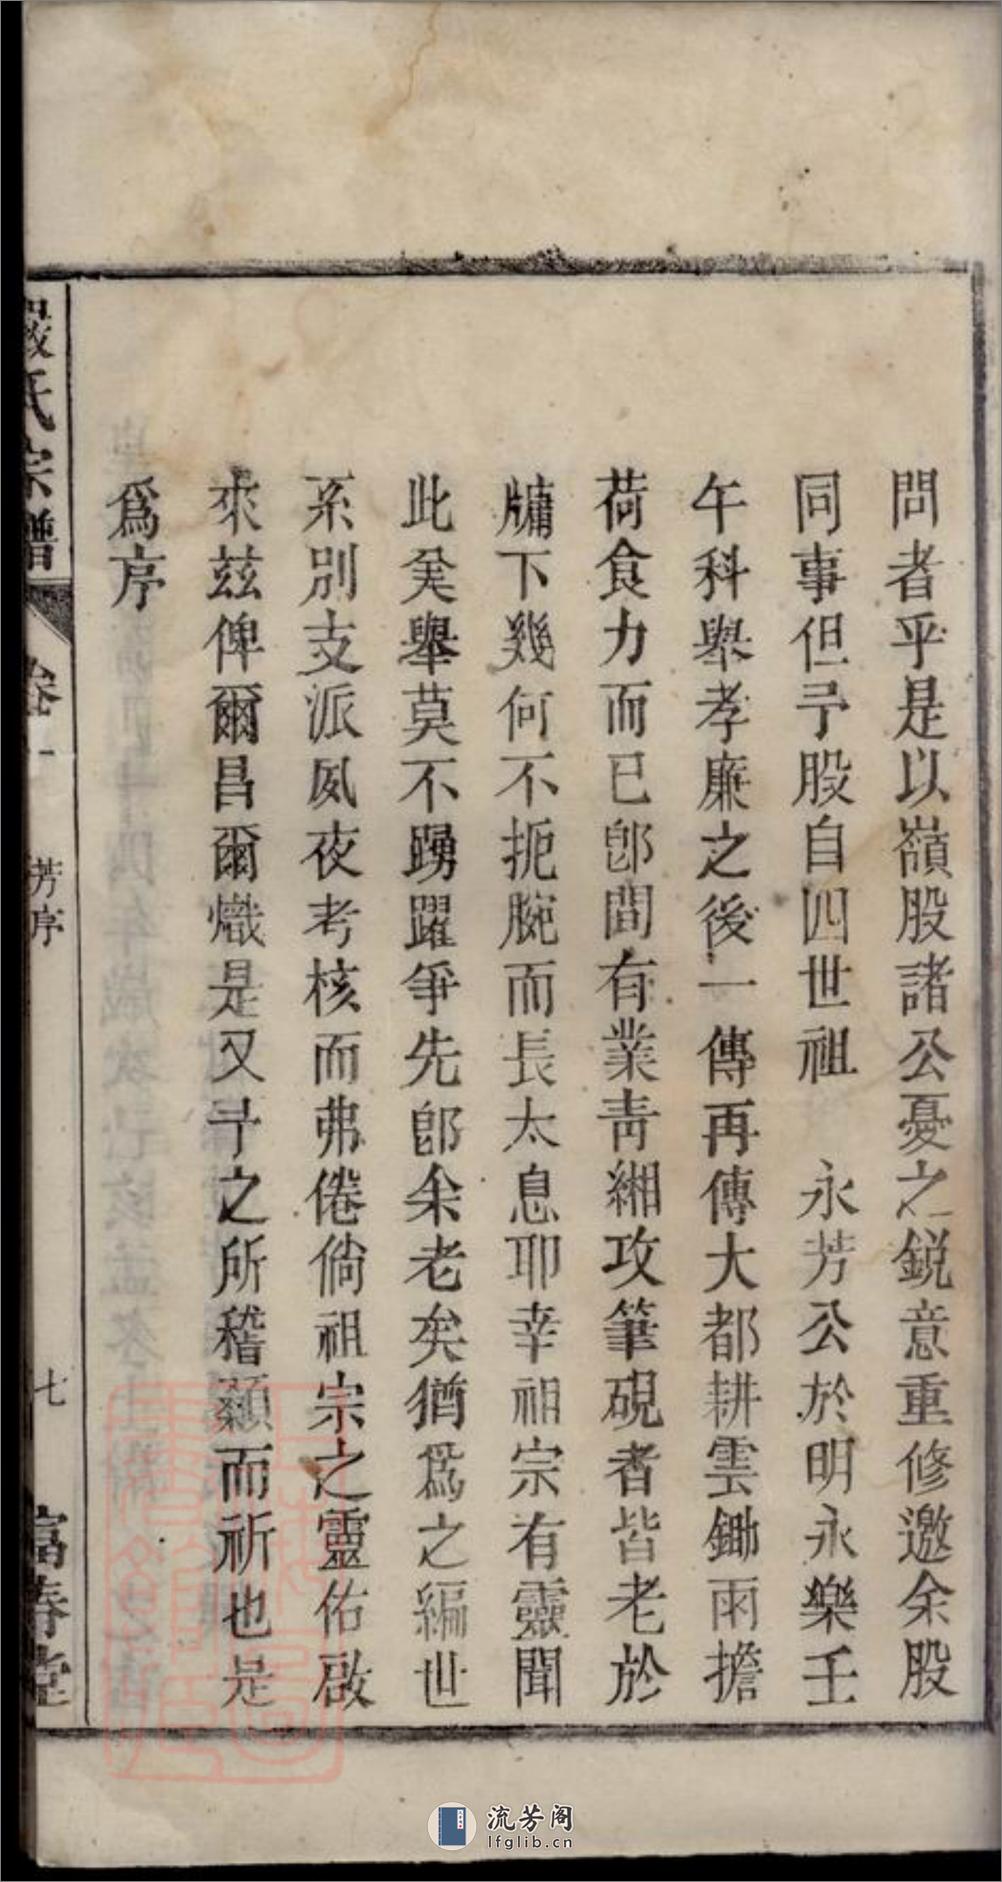 問者乎是以嶺股諸公憂之銳意重修邀余股
同事但予股自四世祖　永芳公於明永樂壬
午科舉孝廉之後一傳再傳大都耕雲鋤雨擔
荷食力而已卽間有業靑緗攻筆硯者皆老於
牗下幾何不扼腕而長太息耶幸祖宗有靈聞
此矣舉莫不踴躍爭先卽余老矣猶爲之編世
系別支派夙夜考核而弗倦倘祖宗之靈佑啟
來茲俾爾昌爾熾是又予之所稽顙而祈也是
爲序
嚴氏宗譜
卷一
芳序
七
富春堂
流芳阁
lfglib.cn